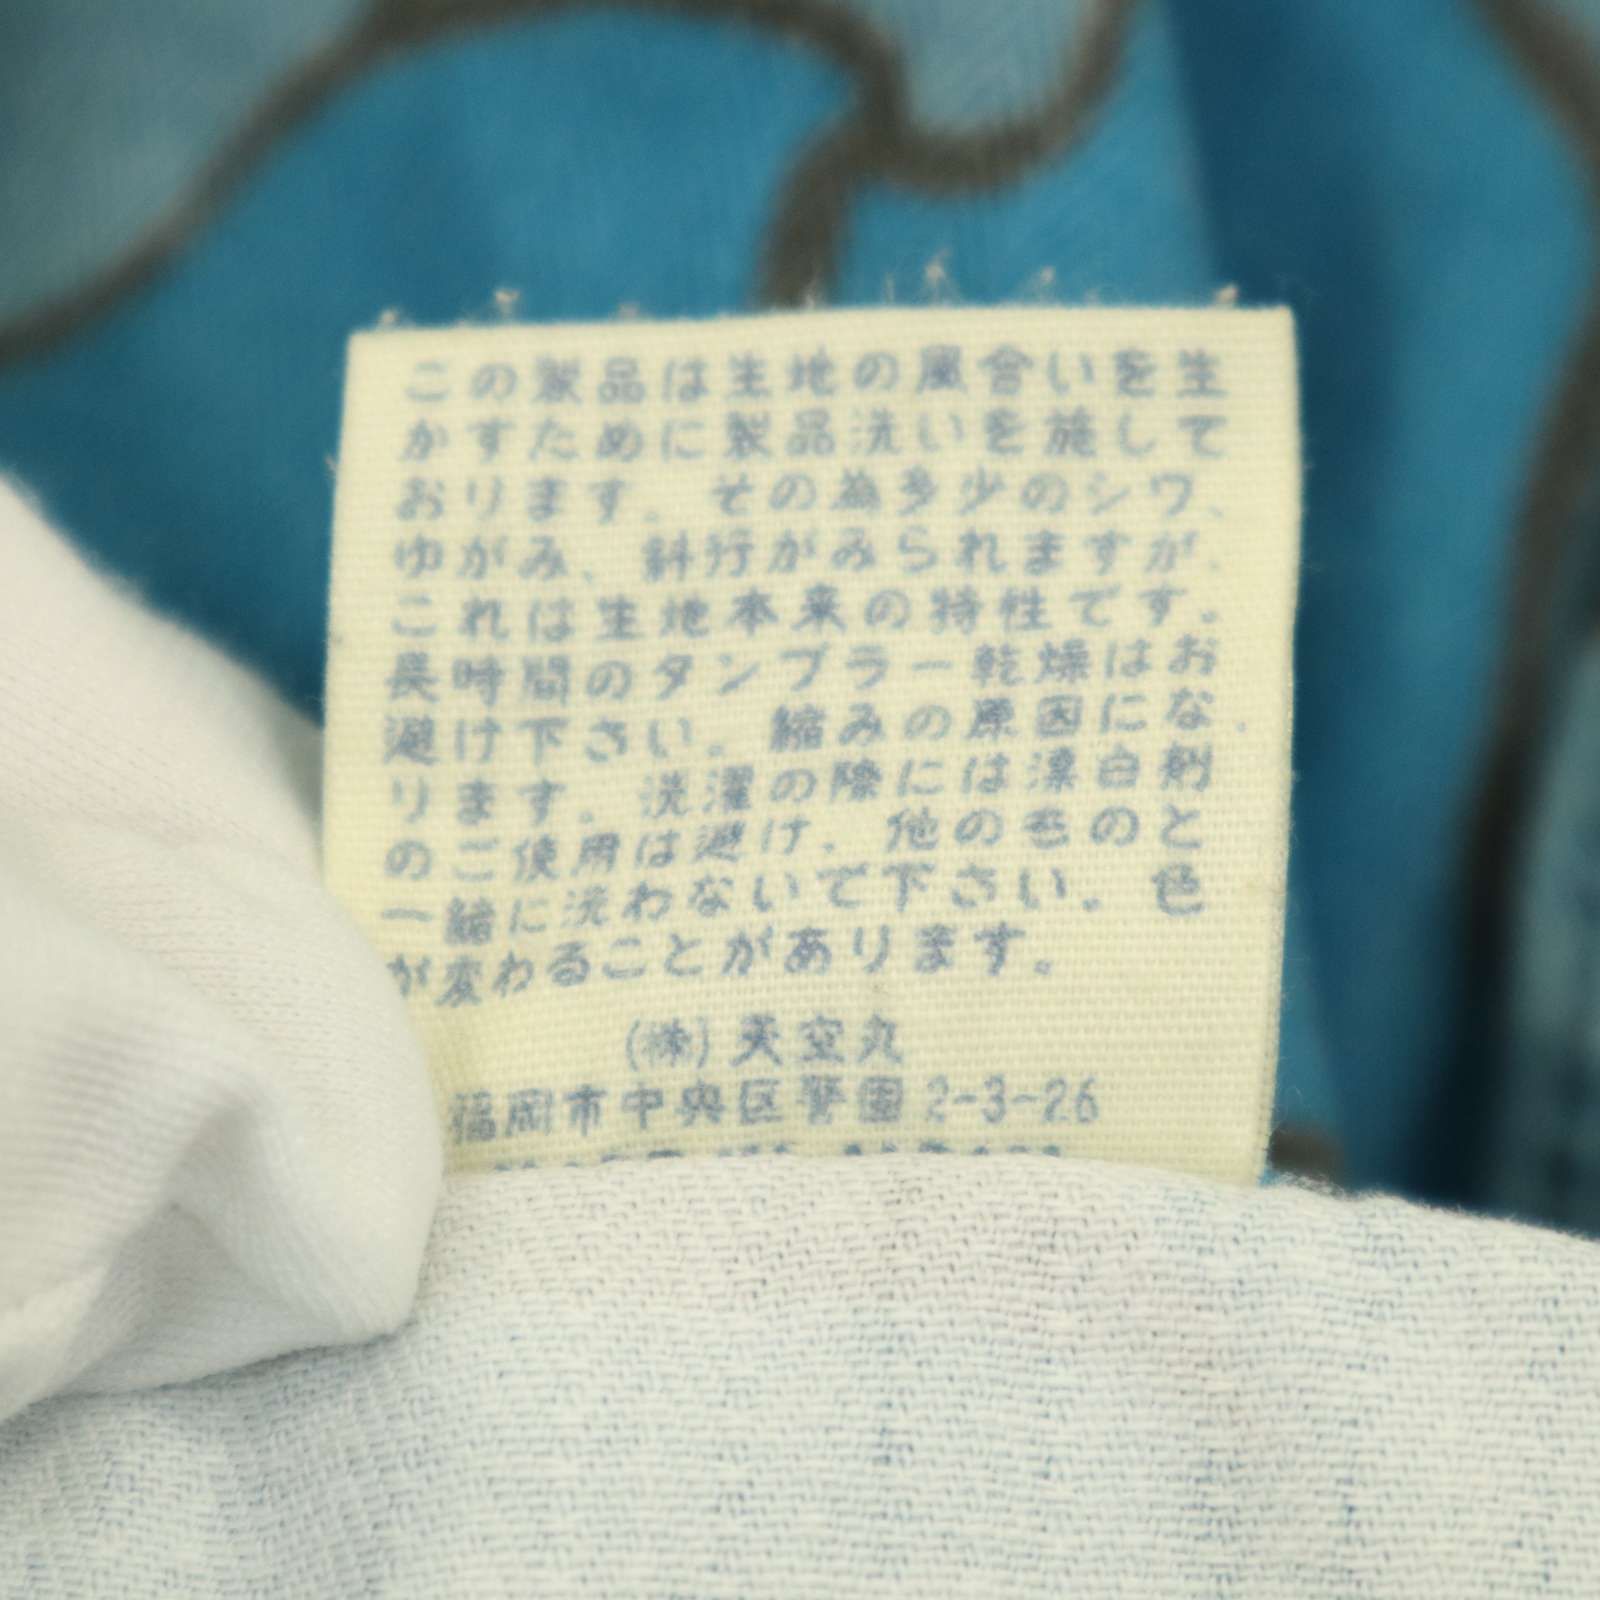 この製品は生地の風合いを生
かすために製品洗いを施して
おります。その為多少のシワ、
ゆがみ、斜行がみられますが、
これは生地本来の特性です。
長時間のタンブラー乾燥はお
避け下さい。縮みの原因にな
ります。洗濯の際には漂白剤
のご使用は避け、他のものと
一緒に洗わないで下さい。色
が変わることがあります。
(株)天空丸
福岡市中央区警固2-3-26